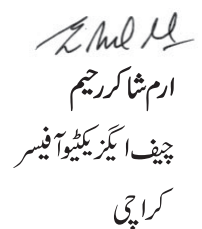 ارم شاکر رحیم
چیف ایگزیکٹیو آفیسر
کراچی